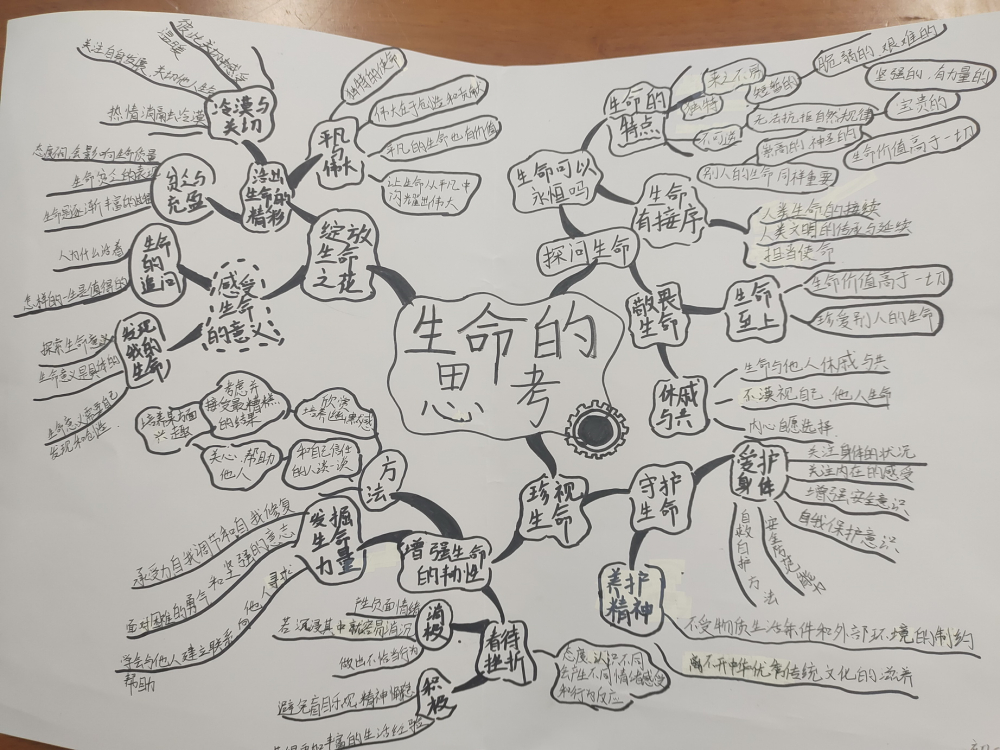 生命的
思考
探问生命
生命可以
永恒吗
生命的
特点
来之不易
独特
不可逆
短暂的
脆弱的、艰难的
坚强的、有力量的
无法抗拒自然规律
宝贵的
崇高的、神圣的
生命价值高于一切
别人的生命同样重要
生命
有接序
人类生命的接续
人类文明的传承与延续
担当使命
敬畏
生命
生命
至上
生命价值高于一切
珍爱别人的生命
休戚
与共
生命与他人休戚与共
不漠视自己、他人生命
内心自愿选择
珍视
生命
守护
生命
爱护
身体
关注身体的状况
关注内在的感受
增强安全意识
自我保护意识
安全防范能力
自救自护方法
养护
精神
不受物质生活条件和外部环境的制约
离不开中华优秀传统文化的滋养
增强生命
的韧性
方
法
和自己信任
的人谈一次
欣赏
培养幽默感
考虑并
接受最糟糕
的结果
培养某方面
兴趣
关心、帮助
他人
发掘
生命
力量
承受力自我调节和自我修复
面对困难的勇气和坚强的意志
学会与他人建立联系向他人寻求
帮助
看待
挫折
态度、认识不同
会产生不同情绪感受
和行为反应
消极
产生负面情绪
若沉浸其中就容易消沉
做出不恰当行为
积极
避免盲目乐观,精神懈怠
丰富的生活经验
绽放
生命
之花
感受
生命
的意义
生命
的
追问
人为什么活着
怎样的一生是值得的
发现
我的
生命
探索生命意义
生命意义是具体的
生命意义需要自己
发现和创造
活出
生命的
精彩
贫乏与
充盈
态度不同,会影响生命质量
生命贫乏的表现
生命是逐渐丰富的过程
冷漠与
关切
彼此关切
温暖
关注自身发展、关切他人生命
热情消融冷漠
平凡
与
伟大
独特的使命
伟大在于创造和贡献
平凡的生命也有价值
让生命从平凡中
闪耀出伟大